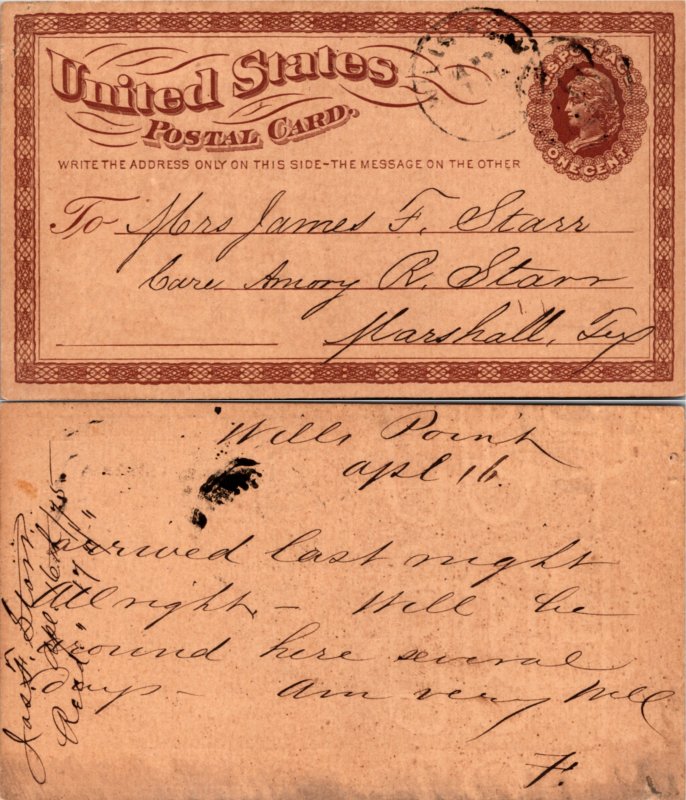 United States
POSTAL CARD.
U.S. POSTAGE
ONE CENT
WRITE THE ADDRESS ONLY ON THIS SIDE-THE MESSAGE ON THE OTHER
To Mrs James F. Starr
Care Amory R. Starr
Marshall, Tex
Wills Point
Apl 16
arrived last night
All right - Will be
around here several
days - Am very well
F.
Jas. F. Starr
Apl 16th /75
Recd " 17 "